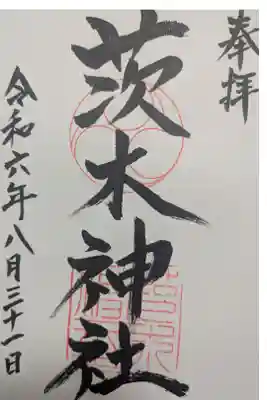 奉拝
茨木神社
令和六年八月三十一日